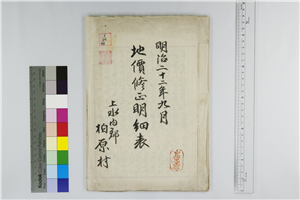 明治二十二年九月
地價修正明細表
上水内郡
柏原村